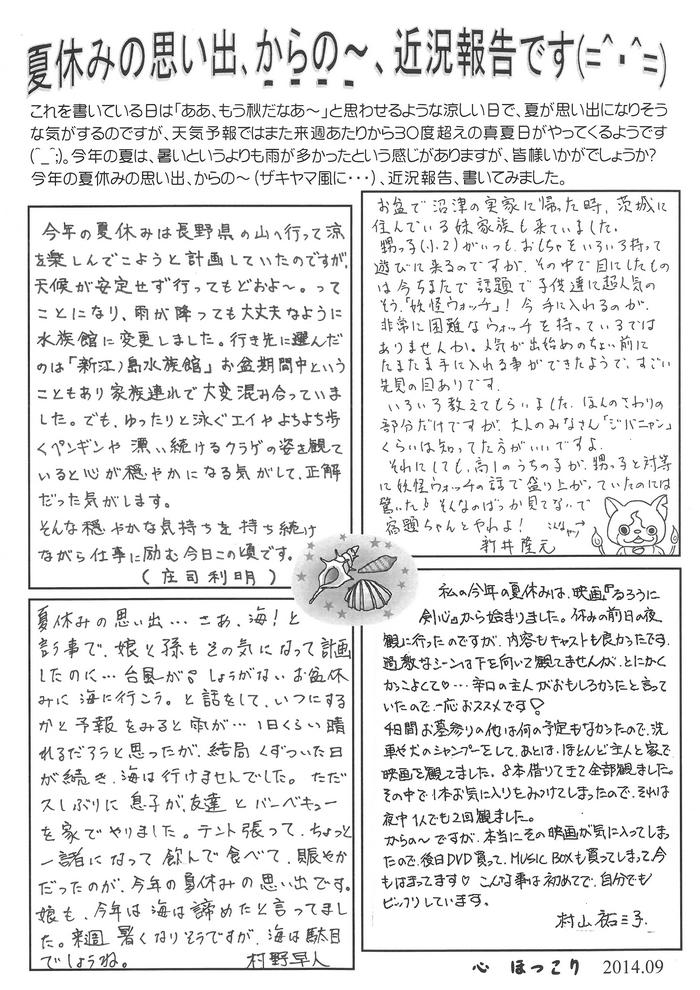 夏休みの思い出、からの～、近況報告です(=^・^=)
これを書いている日は「ああ、もう秋だなあ～」と思わせるような涼しい日で、夏が思い出になりそう
な気がするのですが、天気予報ではまた来週あたりから30度超えの真夏日がやってくるようです
(^_^;)。今年の夏は、暑いというよりも雨が多かったという感じがありますが、皆様いかがでしょうか?
今年の夏休みの思い出、からの～(ザキヤマ風に・・・)、近況報告、書いてみました。
今年の夏休みは長野県の山へ行って涼
を楽しんでこようと計画していたのですが、
天候が安定せず行ってもどおよ～。って
ことになり、雨が降っても大丈夫なように
水族館に変更しました。行き先に選んだ
のは「新江ノ島水族館」お盆期間中という
こともあり家族連れで大変混み合っていま
した。でも、ゆったりと泳ぐエイやよちよち歩
くペンギンや漂い続けるクラゲの姿を観て
いると心が穏やかになる気がして、正解
だった気がします。
そんな穏やかな気持ちを持ち続け
ながら仕事に励む今日この頃です。
(庄司利明)
お盆で沼津の実家に帰った時、茨城に
住んでいる妹家族も来ていました。
甥っ子(小2)がいつも、おもちゃをいろいろ持って
遊びに来るのですが、その中で目にしたもの
は今ちまたで話題で子供達に超人気の
そう、「妖怪ウォッチ」!今手に入れるのが、
非常に困難なウォッチを持っているでは
ありませんか。人気が出始めのちょい前に
たまたま手に入れる事ができたようで、すごい
先見の目ありです。
いろいろ教えてもらいました、ほんのさわりの
部分だけですが、大人のみなさん「ジバニャン」
くらいは知ってた方がいいですよ。
それにしても、高1のうちの子が、甥っ子と対等
に妖怪ウォッチの話で盛り上がっていたのには
驚いた♪そんなのばっか見てないで
宿題ちゃんとやれよ! こんなや→
新井隆元
夏休みの思い出・・・さあ、海!と
言う事で、娘と孫もその気になって計画
したのに・・・台風が・・しょうがないお盆休
みに海に行こう。と話をして、いつにする
かと予報をみると雨が・・・1日くらい晴
れるだろうと思ったが、結局くずついた日
が続き、海は行けませんでした。ただ
久しぶりに息子が、友達とバーベキュー
を家でやりました。テント張って、ちょっと
一諸になって飲んで食べて、賑やか
だったのが、今年の夏休みの思い出です。
娘も、今年は海は諦めたと言ってまし
た。来週暑くなりそうですが、海は駄目
でしょうね。 村野早人
私の今年の夏休みは、映画『るろうに
剣心』から始まりました。休みの前日の夜
観に行ったのですが、内容もキャストも良かったです。
過激なシーンは下を向いて観てませんが、とにかく
かっこよくて♡・・・辛口の主人がおもしろかったと言っ
ていたので、一応おススメです!
4日間お墓参りの他は何の予定もなかったので、洗
車や犬のシャンプーをして、あとは、ほとんど主人と家で
映画を観てました。8本借りてきて全部観ました。
その中で1本お気に入りをみつけてしまったので、それは
夜中1人でも2回観ました。
からの～ですが、本当にその映画が気に入ってしまっ
たので、後日DVD買って、MUSIC BOXも買ってしまって、今
もはまってます♡こんな事は初めてで、自分でも
ビックリしています。
村山祐三子
心 ほっこり 2014.09